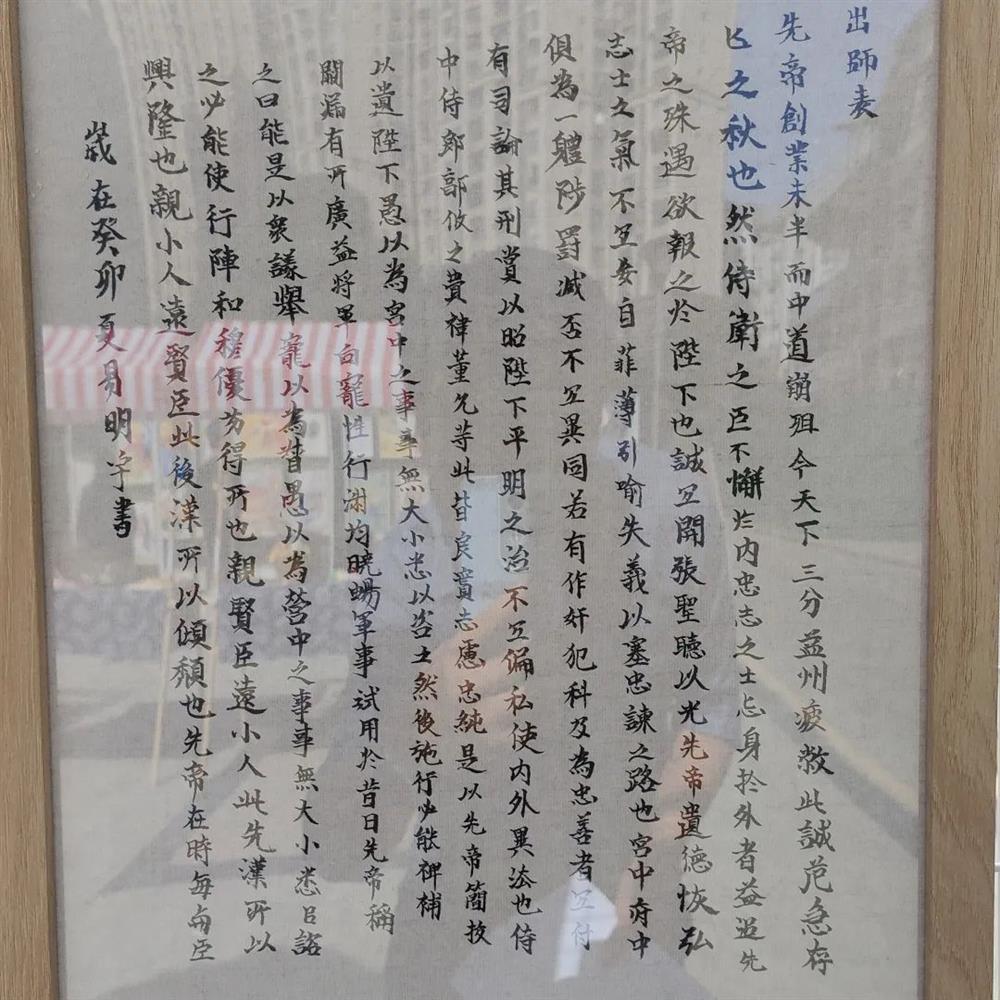 出師表
先帝創業未半而中道崩殂今天下三分益州疲敝此誠危急存
亡之秋也然侍衛之臣不懈於內忠志之士忘身於外者益追先
帝之殊遇欲報之於陛下也誠宜開張聖聽以光先帝遺德恢弘
志士之氣不宜妄自菲薄引喻失義以塞忠諫之路也宮中府中
俱為一體陟罰减否不宜異同若有作奸犯科及為忠善者宜付
有司論其刑賞以昭陛下平明之治不宜偏私使內外異法也侍
中侍郎郭攸之費禕董允等此皆良實志慮忠純是以先帝簡拔
以遺陛下愚以為宮中之事事無大小悉以咨之然後施行必能裨補
闕漏有所廣益將軍向寵性行淑均曉暢軍事試用於昔日先帝稱
之曰能是以眾議舉寵以為督愚以為營中之事事無大小悉以諮
之必能使行陣和穆優劣得所也親賢臣遠小人此先漢所以
興隆也親小人遠賢臣此後漢所以傾頹也先帝在時每與臣
歲在癸卯夏易明宇書